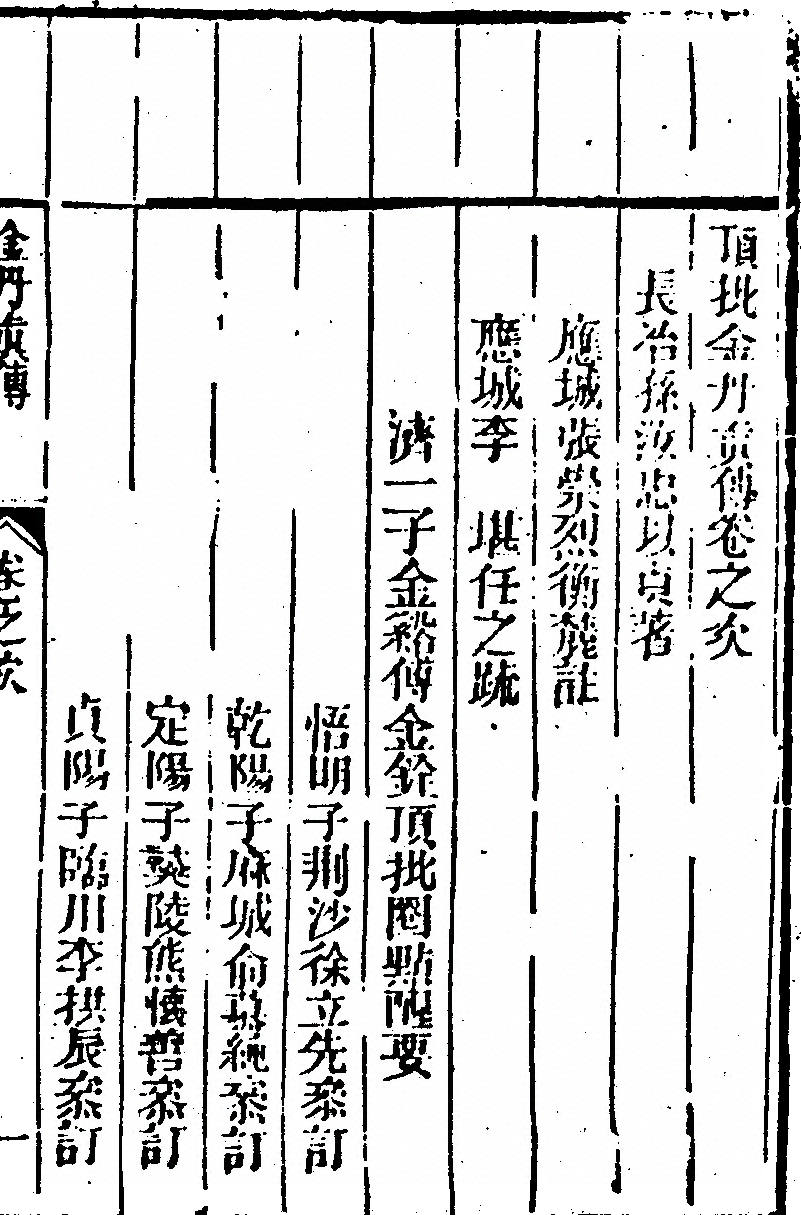 頂批金丹真傳卷之次
長治孫汝忠以貞著
應城張崇烈衡麓註
應城李　堪任之疏
濟一子金谿傅金銓頂批圈點醒要
悟明子荆沙徐立先叅訂
乾陽子麻城俞慕純叅訂
定陽子陵熊懷善叅訂
貞陽子臨川李拱辰叅訂
金丹真傳
卷之次
一